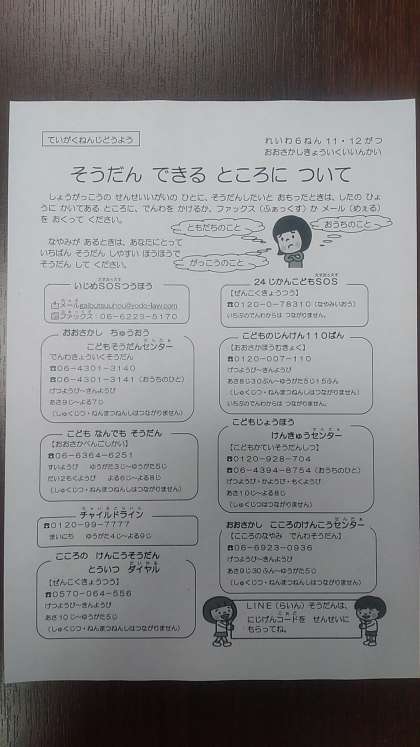 ていがくねんじどうよう
れいわ６ねん １１・１２がつ
おおさかしきょういくいいんかい
そうだん できる ところに ついて
しょうがっこうの せんせいいがいの ひとに、そうだんしたいと おもったときは、したの ひょ
うに かいてある ところに、でんわを かけるか、ファックス（ふぁっくす）か メール（めぇる）
を おくって ください。
なやみが あるときは、あなたにとって
いちばん そうだん しやすい ほうほうで
そうだん して ください。
ともだちのこと
おうちのこと
がっこうのこと
いじめＳＯＳつうほう
メール
ファックス：０６－６２２９－５１７０
おおさかし ちゅうおう
こどもそうだんセンター
でんわきょういくそうだん
☎０６－４３０１－３１４０
☎０６－４３０１－３１４１（おうちのひと）
げつようび～きんようび
あさ９じ～よる７じ
（しゅくじつ・ねんまつねんしはつながりません）
こども なんでも そうだん
【おおさかべんごしかい】
☎０６－６３６４－６２５１
すいようび ゆうがた３じ～ゆうがた５じ
だい２もくようび よる６じ～よる８じ
（しゅくじつ・ねんまつねんしはつながりません）
チャイルドライン
☎０１２０－９９－７７７７
まいにち ゆうがた４じ～よる９じ
こころの けんこうそうだん
とういつ ダイヤル
【ぜんこくきょうつう】
☎０５７０－０６４－５５６
げつようび～きんようび
あさ１０じ～ゆうがた５じ
（しゅくじつ・ねんまつねんしはつながりません）
２４じかんこどもＳＯＳ
【ぜんこくきょうつう】
☎０１２０－０－７８３１０（なやみいおう）
いちぶのでんわからは つながりません。
こどものじんけん１１０ばん
【おおさかほうむきょく】
☎０１２０－００７－１１０
げつようび～きんようび
あさ８じ３０ぷん～ゆうがた５じ１５ふん
（しゅくじつ・ねんまつねんしはつながりません）
いちぶのでんわからは つながりません。
こどもじょうほう
けんきゅうセンター
【こどもかていそうだんしつ】
☎０１２０－９２８－７０４
☎０６－４３９４－８７５４（おうちのひと）
げつようび・かようび・もくようび
あさ１０じ～よる８じ
（しゅくじつはつながりません）
おおさかし こころのけんこうセンター
【こころのなやみ でんわそうだん】
☎０６－６９２３－０９３６
げつようび～きんようび
あさ９じ３０ぷん～ゆうがた５じ
（しゅくじつ・ねんまつねんしはつながりません）
ＬＩＮＥ（らいん）そうだんは、
にじげんコードを せんせいに
もらってね。